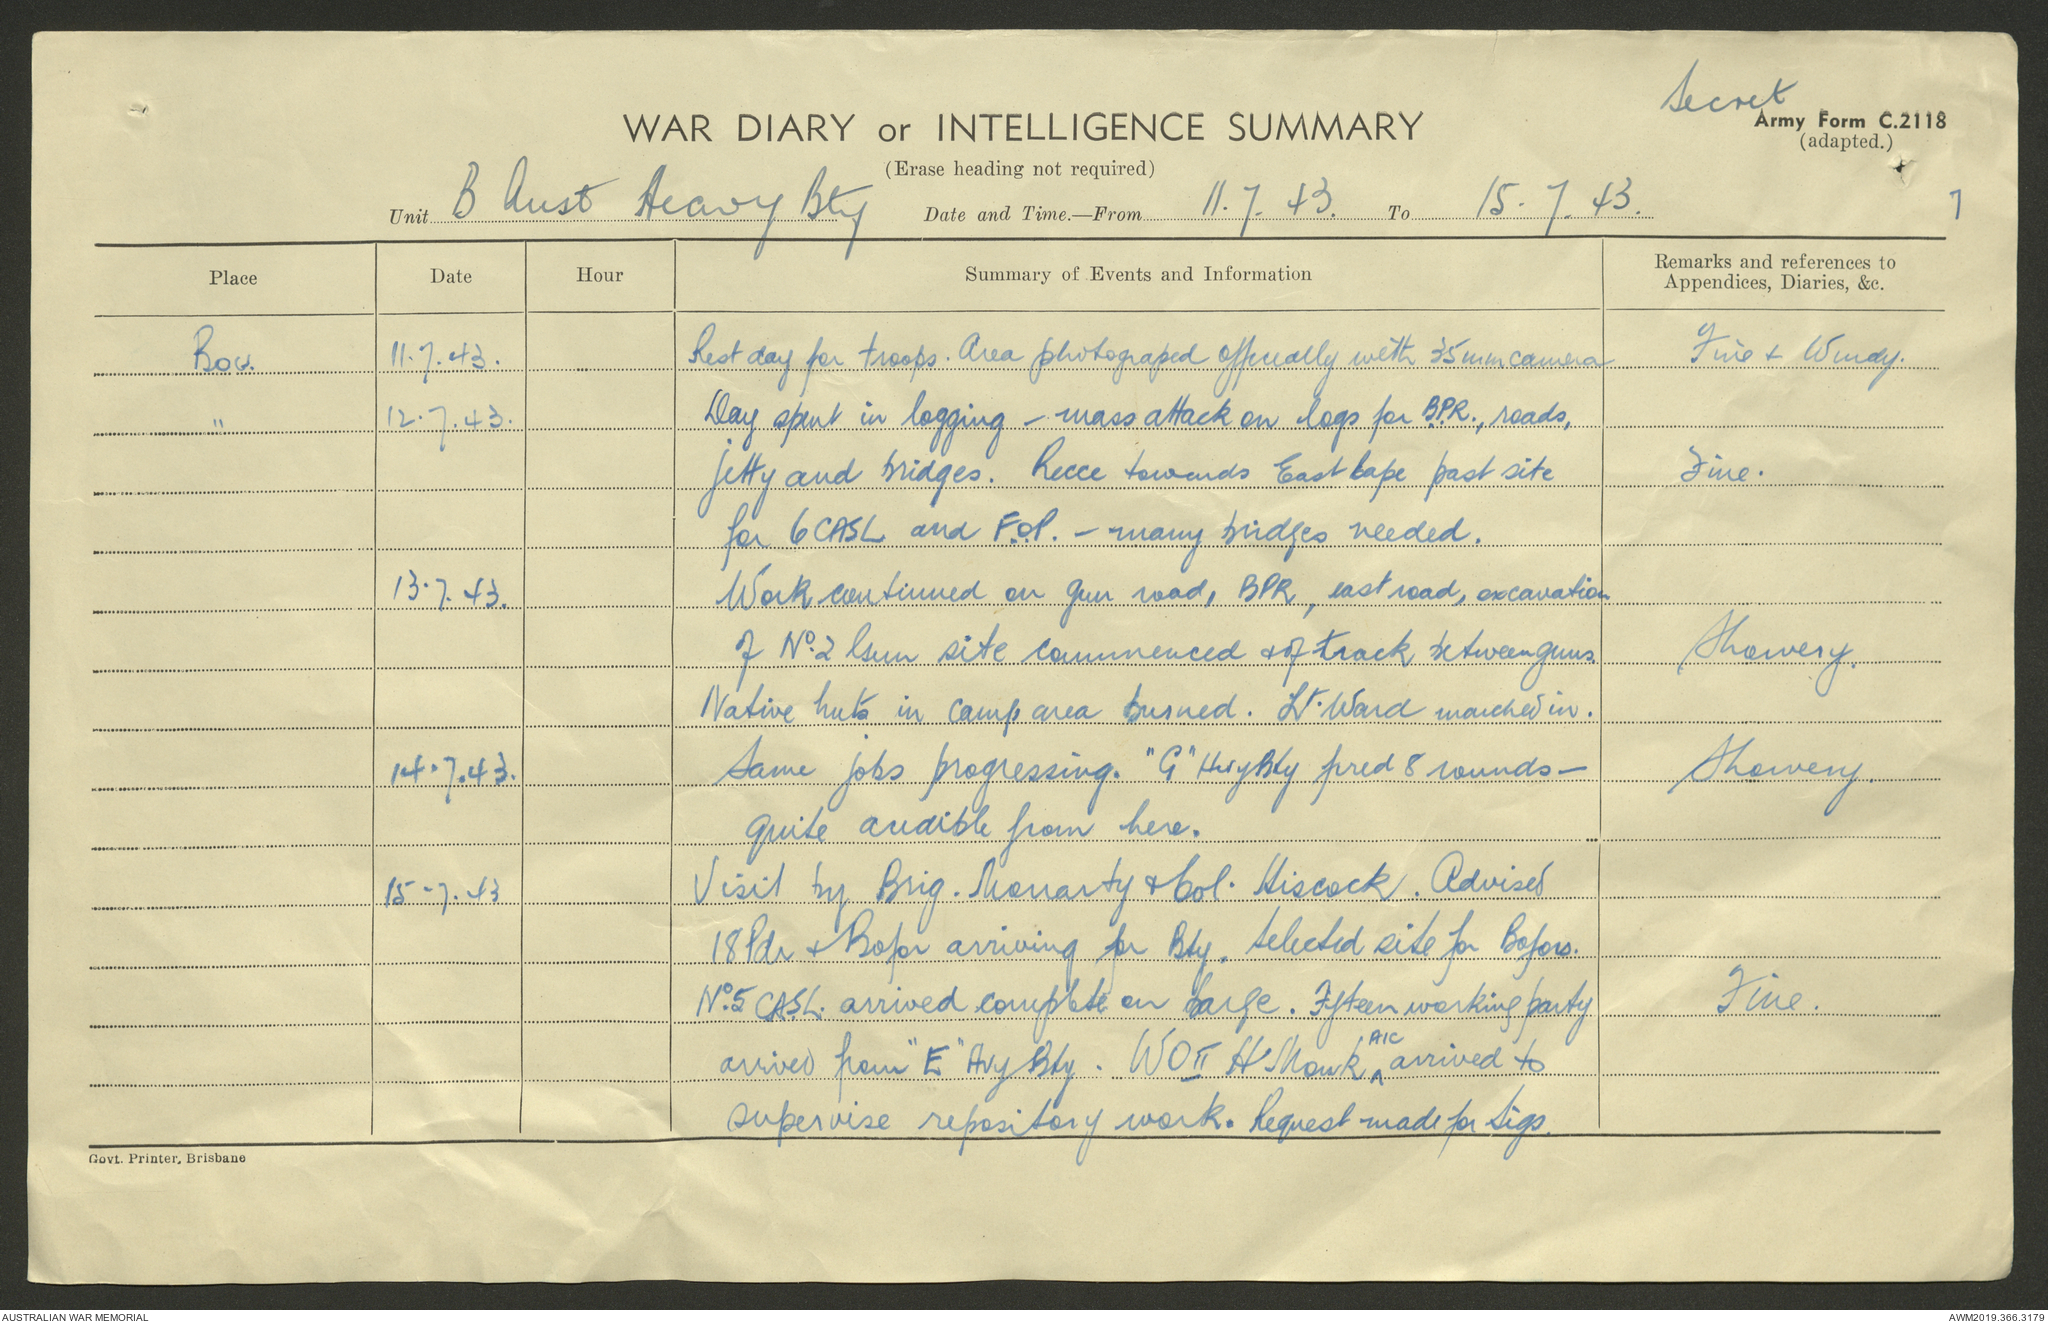 Secret
WAR DIARY or INTELLIGENCE SUMMARY
Army Form C.2118
(adapted.)
(Erase heading not required)
Unit B Aust Heavy Bty Date and Time.—From 11.7.43. To 15.7.43.
7
Place Date Hour Summary of Events and Information Remarks and references to
Appendices, Diaries, &c.
11.7.43. Rest day for troops. Area photograped officially with 35mm camera Fine & Windy.
" 12.7.43. Day spent in logging – mass attack on logs for B.P.R., roads,
jetty and bridges. Recce towards East Cape past site Fine.
for 6 CASL and F.O.P. – many bridges needed.
13.7.43. Work continued on gun road, BPR, east road, excavation
of No.2 Gun site commenced & of track between guns. Showery.
Native huts in camp area burned. Lt. Ward marched in.
14.7.43. Same jobs progressing. "G" Hvy Bty fired 8 rounds – Showery.
quite audible from here.
15.7.43 Visit by Brig. Moriarty & Col. Hiscock. Advised
18 Pdr & Bofor arriving for Bty. Selected site for Bofors.
No.5 CASL. arrived complete on barge. Fifteen working party Fine.
arrived from "E" Hvy Bty. WO II H. Monk AIC arrived to
supervise repository work. Request made for Sigs.
Govt. Printer, Brisbane
AUSTRALIAN WAR MEMORIAL AWM2019.366.3179